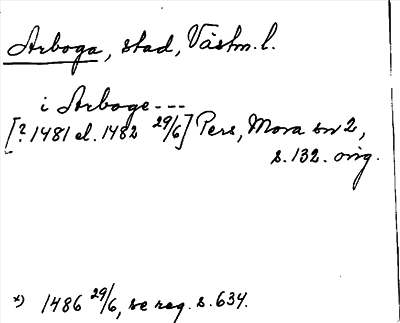 Arboga, stad, Västm. l.
i Arboge ---
[? 1481 el. 1482 29/6] Pers, Mora sn 2,
s. 132. orig.
*) 1486 29/6, se reg. s. 634.